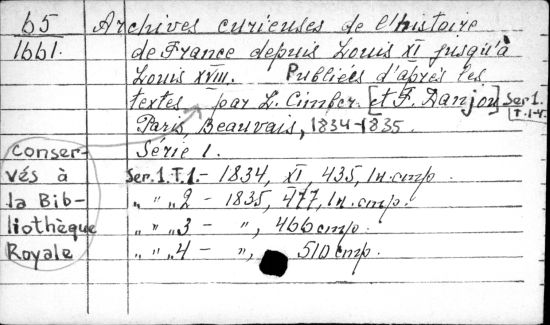 65 Archives curieuses de l'histoire
1661. de France depuis Louis XI jusqu'à
Louis XVIII. Publiées d'après les
textes par L. Cimber [et F. Danjou] Ser 1.
T. 1-4.
Paris, Beauvais, 1834-1835.
Série 1.
conser-
vés à
la Bib-
liothèque
Royale
Ser. 1. T. 1. - 1834, XI, 435, 1 н. стр.
" " " 2 - 1835, 477, 1 н. стр.
" " " 3 - ", 466 стр.
" " " 4 - ", 510 стр.